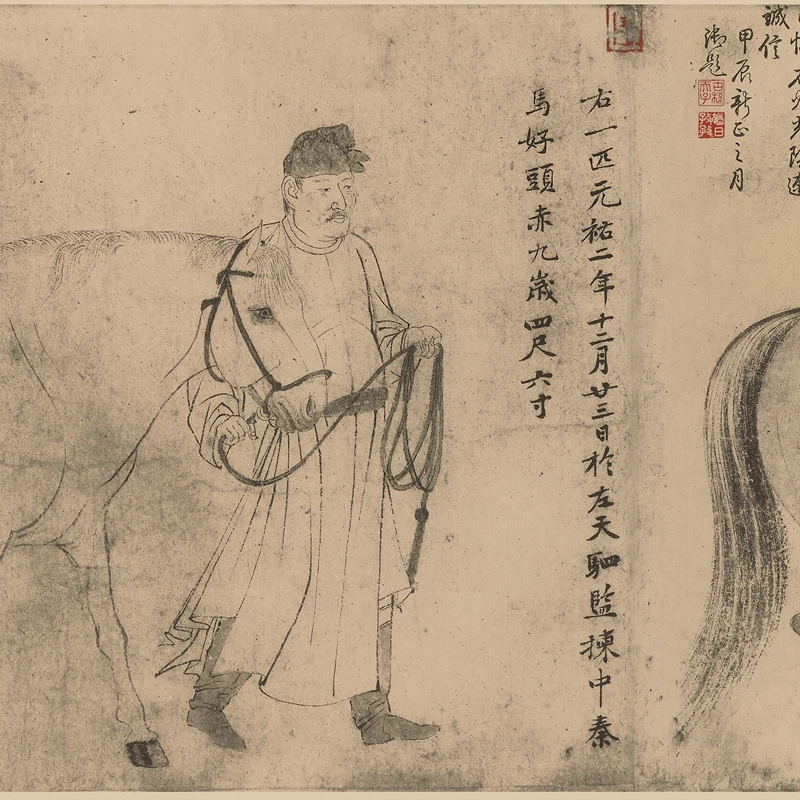 誠信
甲辰新正之月
御題
古稀天子
猶日孜孜
右一匹元祐二年十二月廿三日於左天駟監揀中秦
馬好頭赤九歲四尺六寸